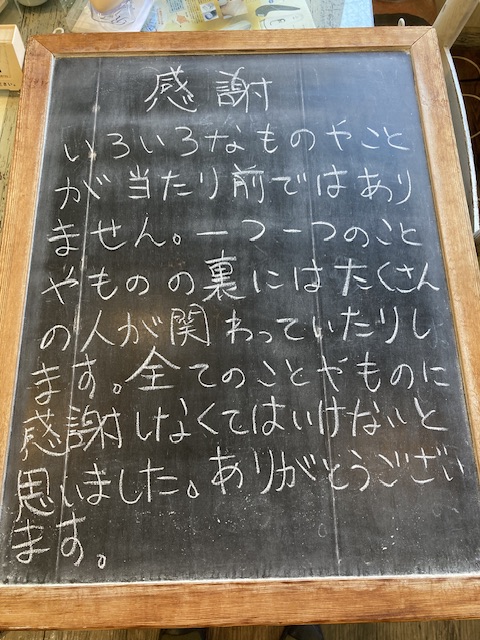 感謝
いろいろなものやこと
が当たり前ではあり
ません。一つ一つのこと
やものの裏にはたくさん
の人が関わっていたりし
ます。全てのことやものに
感謝しなくてはいけないと
思いました。ありがとうござい
ます。